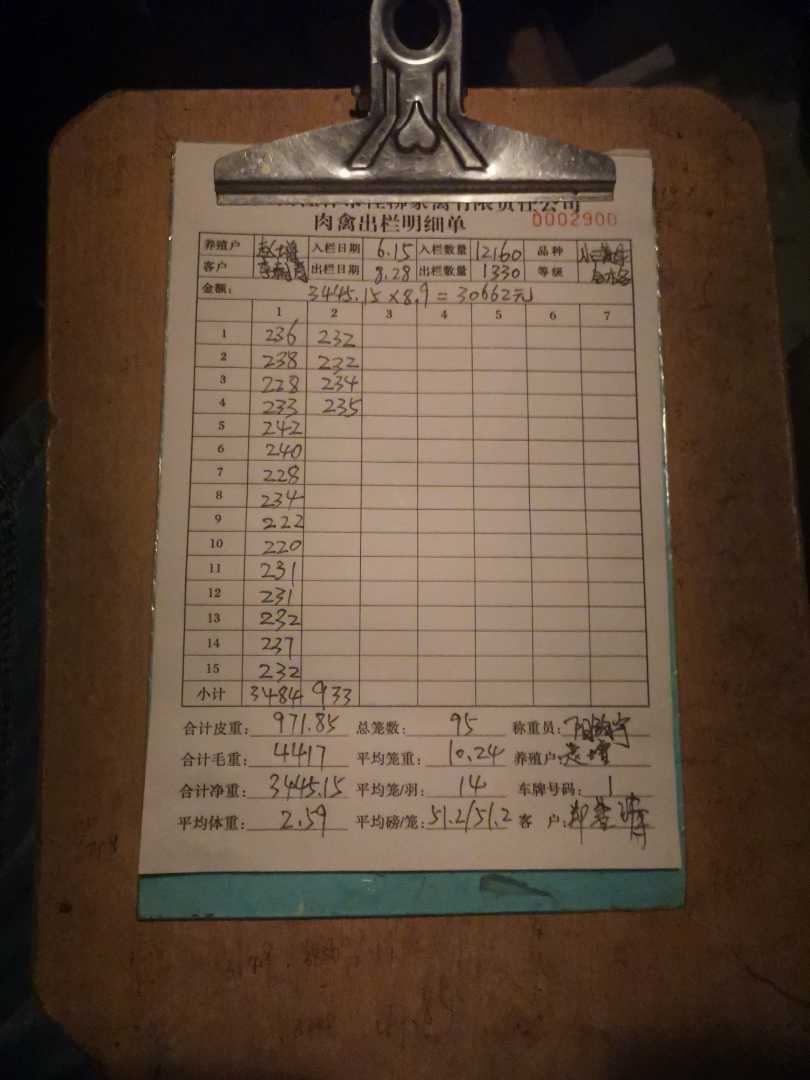 家禽有限责任公司
肉禽出栏明细单 0002900
养殖户 入栏日期 6.15 入栏数量 12160 品种
客户 出栏日期 8.28 出栏数量 1330 等级
金额: 3445.15×8.9=30662元
1 2 3 4 5 6 7
1 236 232
2 238 232
3 228 234
4 233 235
5 242
6 240
7 228
8 234
9 222
10 220
11 231
12 231
13 232
14 237
15 232
小计 3484 933
合计皮重: 971.85 总笼数: 95 称重员:
合计毛重: 4417 平均笼重: 10.24 养殖户:
合计净重: 3445.15 平均笼/羽: 14 车牌号码: 1
平均体重: 2.59 平均磅/笼: 51.2/51.2 客 户: